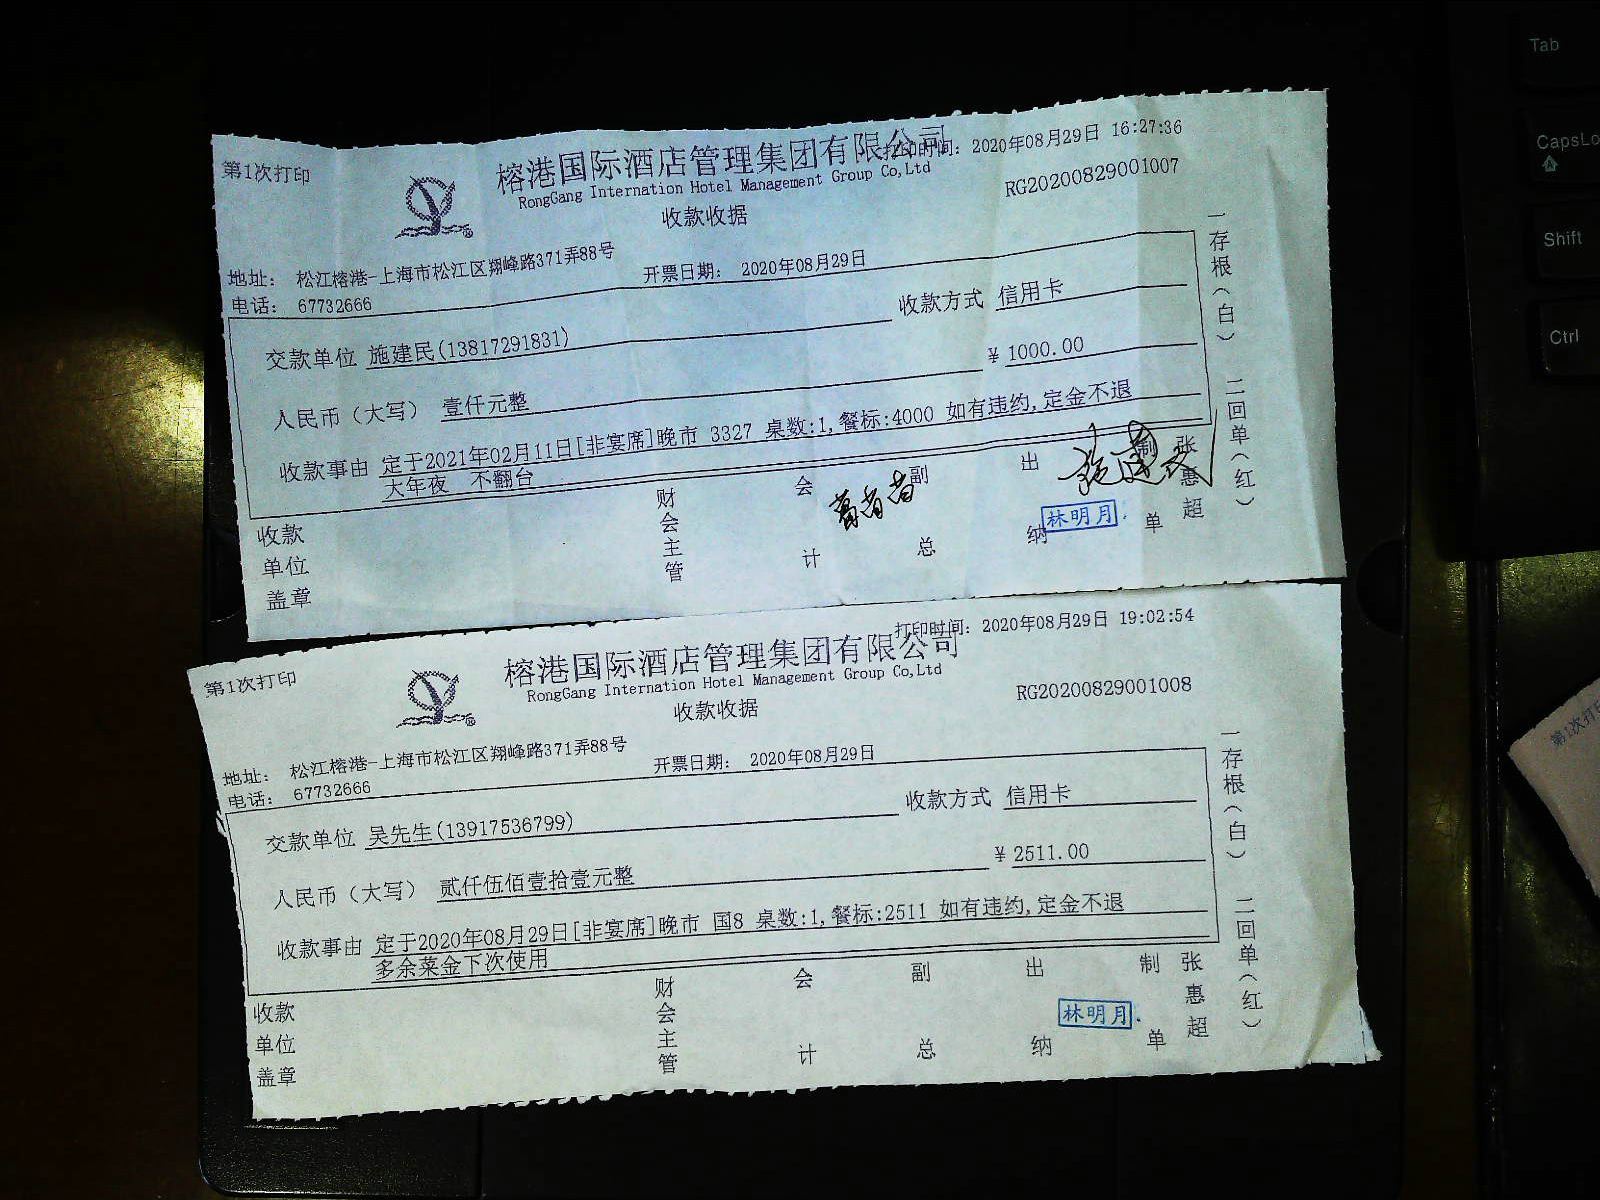 第1次打印
榕港国际酒店管理集团有限公司
打印时间: 2020年08月29日 16:27:36
RongGang Internation Hotel Management Group Co,Ltd
RG20200829001007
收款收据
地址: 松江榕港-上海市松江区翔峰路371弄88号
开票日期: 2020年08月29日
电话: 67732666
收款方式 信用卡
交款单位 施建民(13817291831)
¥ 1000.00
人民币（大写） 壹仟元整
收款事由 定于2021年02月11日[非宴席]晚市 3327 桌数:1,餐标:4000 如有违约,定金不退
大年夜 不翻台
收款单位盖章
财会主管
会计
副总
出纳
林明月
制单
张惠超
一存根(白) 二回单(红)
第1次打印
榕港国际酒店管理集团有限公司
打印时间: 2020年08月29日 19:02:54
RongGang Internation Hotel Management Group Co,Ltd
RG20200829001008
收款收据
地址: 松江榕港-上海市松江区翔峰路371弄88号
开票日期: 2020年08月29日
电话: 67732666
收款方式 信用卡
交款单位 吴先生(13917536799)
¥ 2511.00
人民币（大写） 贰仟伍佰壹拾壹元整
收款事由 定于2020年08月29日[非宴席]晚市 国8 桌数:1,餐标:2511 如有违约,定金不退
多余菜金下次使用
收款单位盖章
财会主管
会计
副总
出纳
林明月
制单
张惠超
一存根(白) 二回单(红)
Tab
CapsLo
Shift
Ctrl
第1次打印